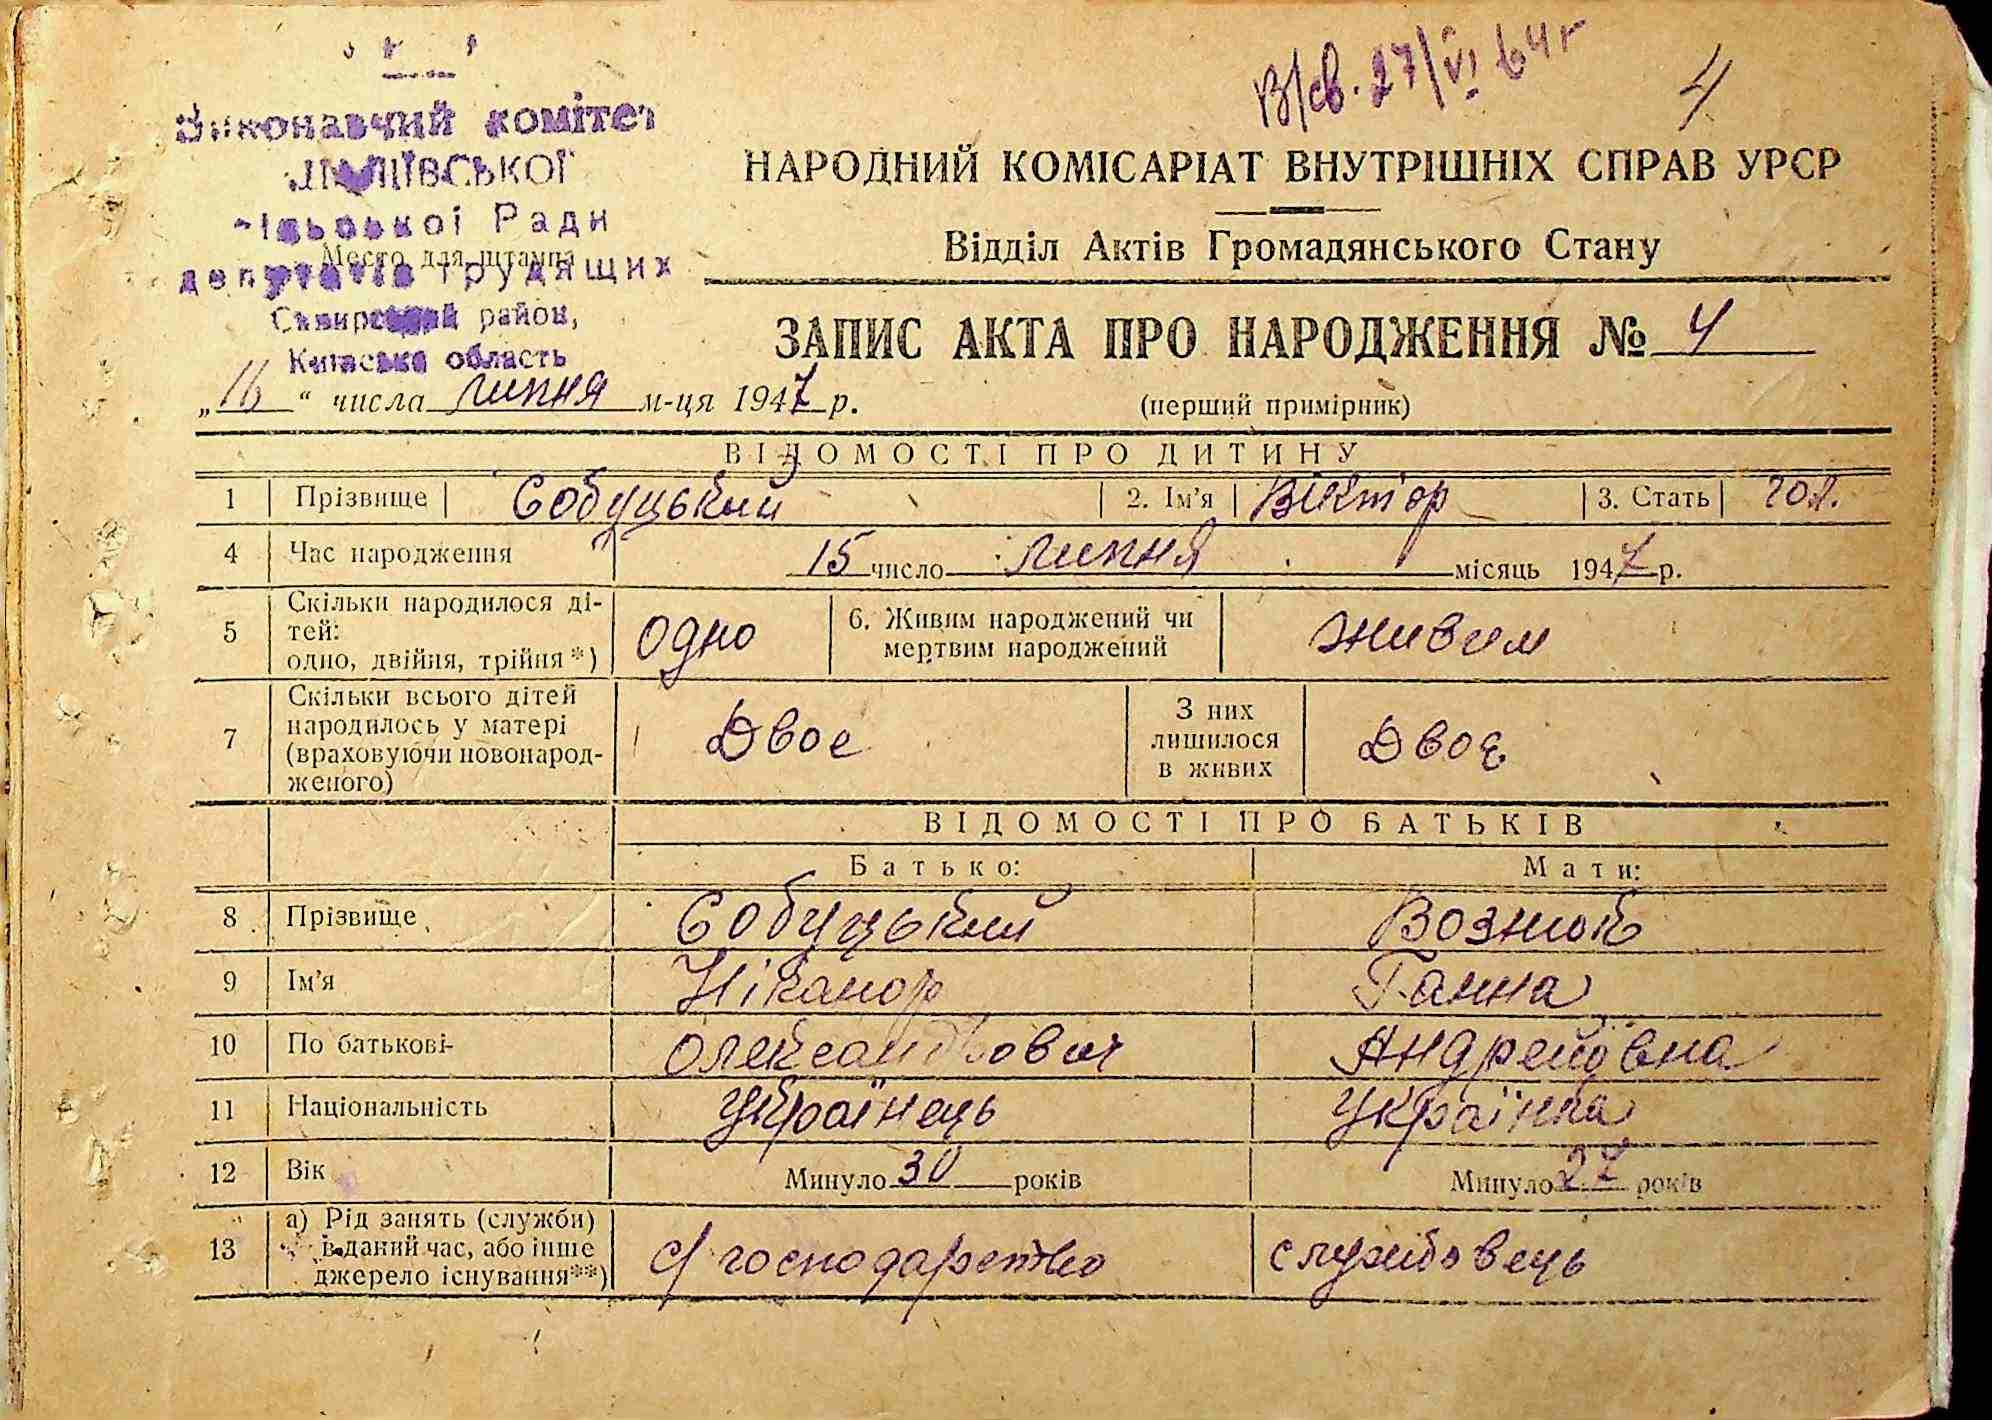 В/св. 27/VI 64 г
4
Виконавчий комітет
сільської Ради
Место для штампа
депутатів трудящих
Сквирський район,
Київська область
НАРОДНИЙ КОМІСАРІАТ ВНУТРІШНІХ СПРАВ УРСР
Відділ Актів Громадянського Стану
ЗАПИС АКТА ПРО НАРОДЖЕННЯ № 4
„16“ числа липня м-ця 1947 р.
(перший примірник)
ВІДОМОСТІ ПРО ДИТИНУ
1 Прізвище Собуцький 2. Ім'я Віктор 3. Стать чол.
4 Час народження 15 число липня місяць 1947 р.
5 Скільки народилося ді-
тей:
одно, двійня, трійня*) одно 6. Живим народжений чи
мертвим народжений живим
7 Скільки всього дітей
народилось у матері
(враховуючи новонарод-
женого) Двоє З них
лишилося
в живих Двоє
ВІДОМОСТІ ПРО БАТЬКІВ
Батько: Мати:
8 Прізвище Собуцький
9 Ім'я Ніканор Ганна
10 По батькові Олександрович Андреївна
11 Національність Українець Українка
12 Вік Минуло 30 років Минуло 27 років
13 а) Рід занять (служби)
в даний час, або інше
джерело існування**) с/господарство службовець